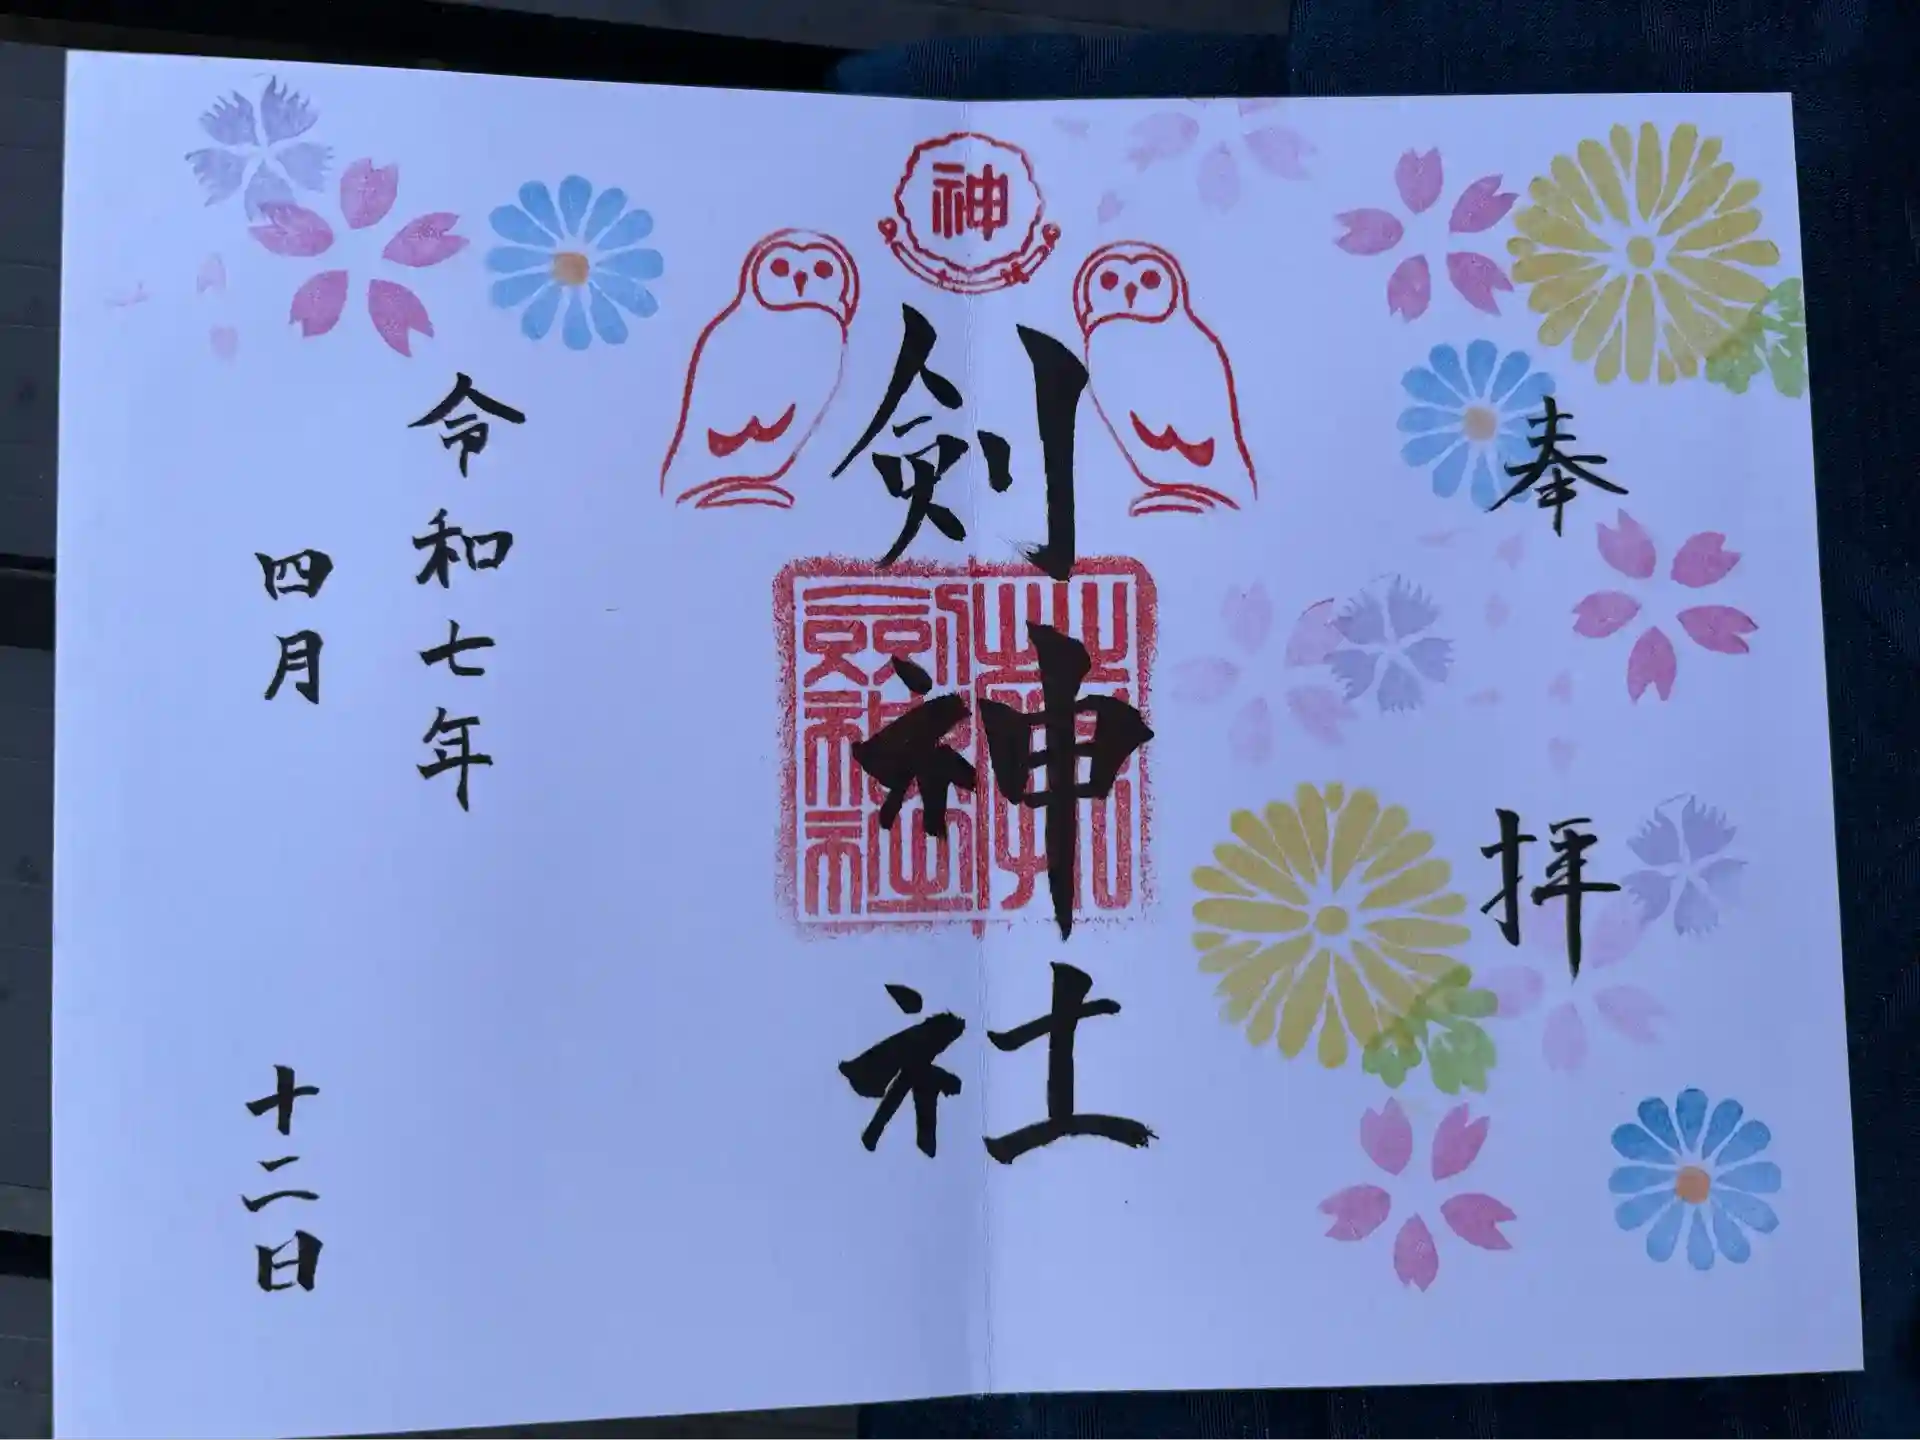 奉拝
神
剣神社
令和七年
四月十二日